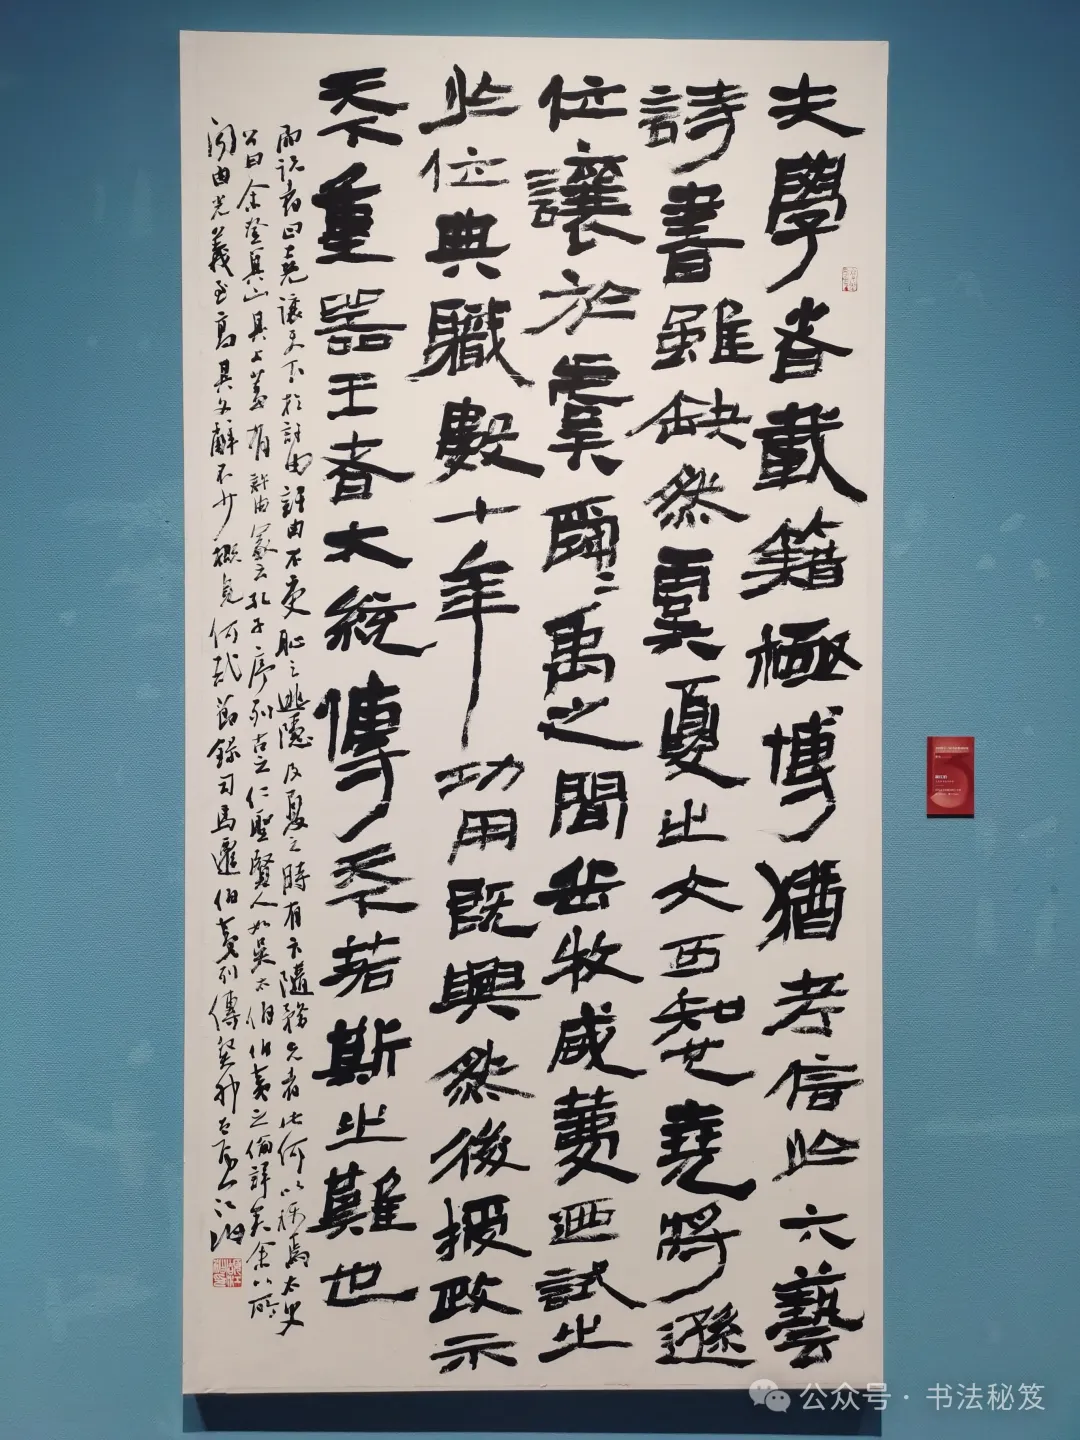 夫學者載籍極博猶考信於六藝
詩書雖缺然虞夏之文可知也堯將遜
位讓於虞舜舜禹之間岳牧咸薦迺試之
於位典職數十年功用既興然後授政示
天下重器王者大統傳天下若斯之難也
而說者曰堯讓天下於許由許由不受恥之逃隱及夏之時有卞隨務光者此何以稱焉太史
公曰余登箕山其上蓋有許由冢云孔子序列古之仁聖賢人如吳太伯伯夷之倫詳矣余以所
聞由光義至高其文辭不少概見何哉節錄司馬遷伯夷列傳癸卯
公众号·书法秘笈